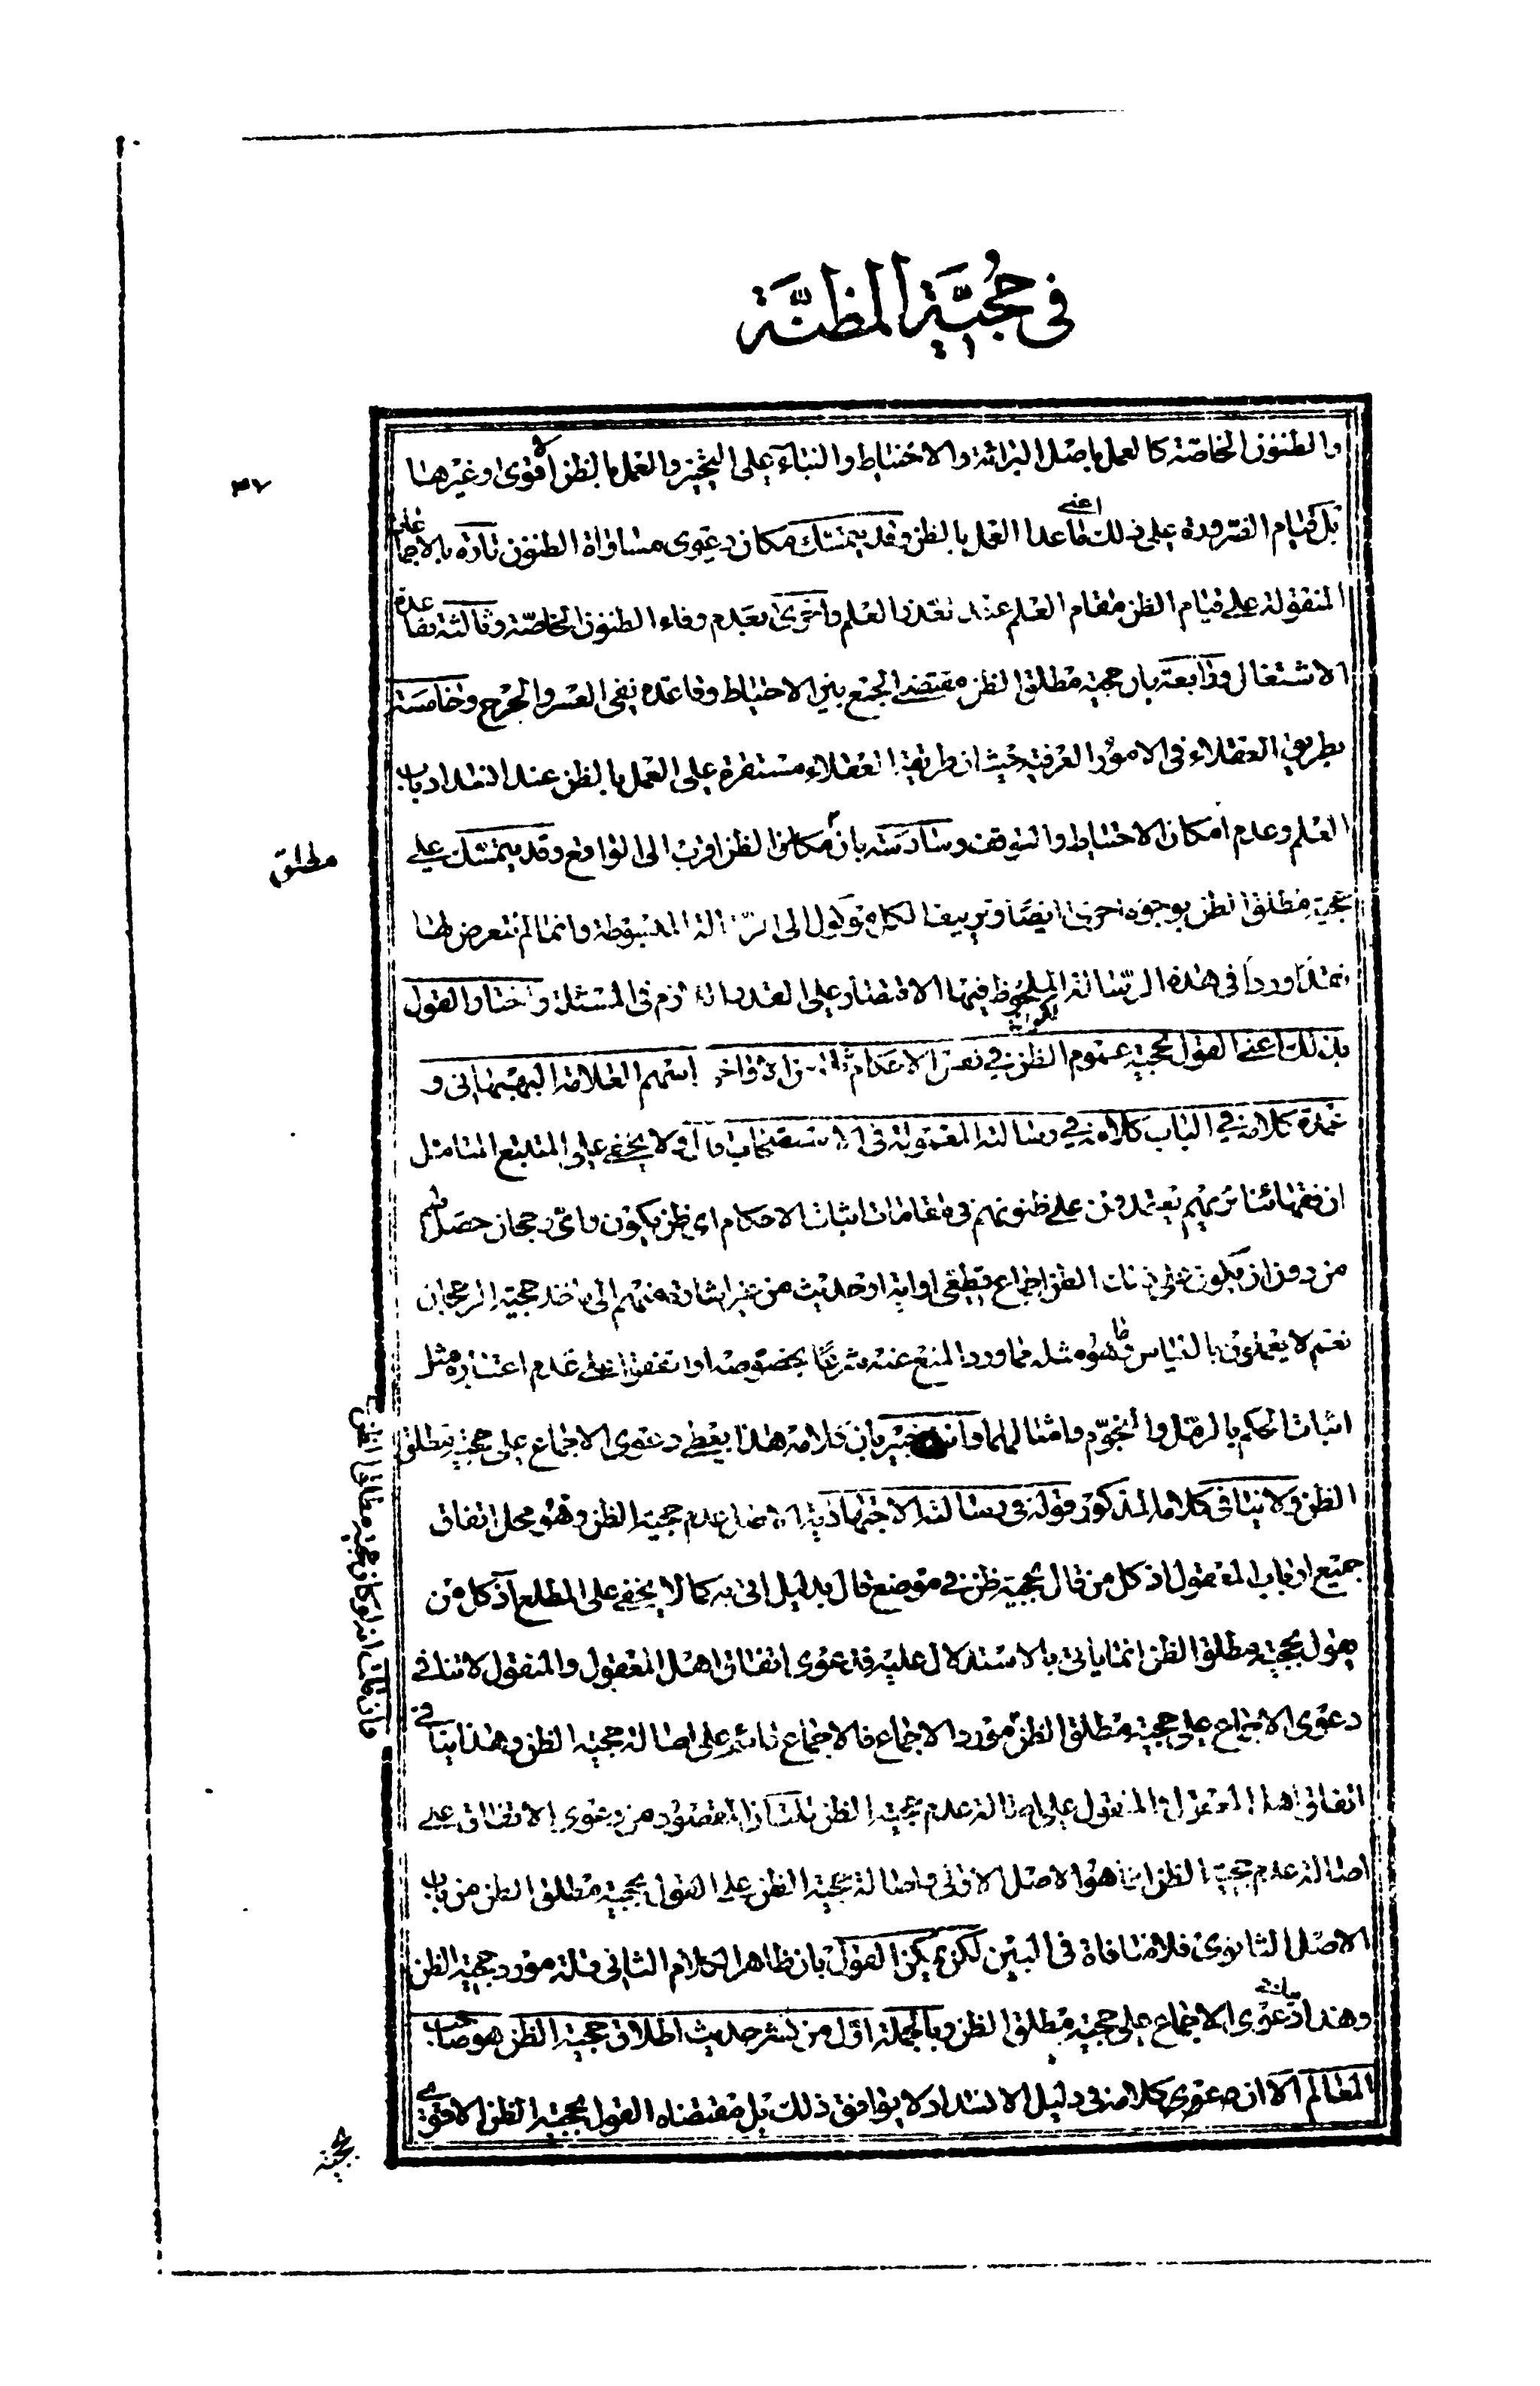 في حُجّيّة المظنّة
٣٧
والظنون الخاصّة كالعمل باصل البرائة والاحتياط والبناء على التخيير والعمل بالظن الاقوى وغيرها
بل قيام الضرورة على ذلك اعنى ما عدا العمل بالظن وقد يتمسّك مكان دعوى مساواة الظنون تارة بالاجماعات
المنقولة على قيام الظن مقام العلم عند تعذر العلم واخرى بعدم وفاء الظنون الخاصّة وثالثة بقاعدة
الاشتغال ورابعة بان حجية مطلق الظن مقتضى الجمع بين الاحتياط وقاعدة نفى العسر والحرج وخامسة
بطريق العقلاء في الامور العرفية حيث ان طريقة العقلاء مستقرة على العمل بالظن عند انسداد باب
العلم وعدم امكان الاحتياط والتوقف وسادسة بان مطلق الظن اقرب الى الواقع وقد يتمسّك على
حجية مطلق الظن بوجوه اخرى ايضًا وتزييف الكل موكول الى الرسالة المبسوطة وانما لم نتعرض لها
في هذه الرّسالة الملحوظ فيها الاقتصار على القدر اللازم في المسئلة واختار القول
بذلك اعنى القول بحجية عموم الظن في نفس الاحكام اسمهم العلامة البهبهانى و
عمدة كلامه في الباب كلامه في رسالته المعمولة في الاستصحاب قال ولا يخفى على المتتبع المتامل
ان فقهائنا تريهم يعتمدون على ظنونهم في مقامات اثبات الاحكام اى ظن يكون واىّ رجحان حصل لهم
من دون ان يكون على ذلك الظن اجماع قطعى او اية او حديث من غير اشارة منهم الى ماخذ حجية الرجحان
نعم لا يعملون بالقياس وما هو مثله مما ورد المنع عنه شرعًا بخصوصه او اتفقوا على عدم اعتباره مثل
اثبات الحكم بالرمل والنجوم وامثالهما وانت خبير بان كلامه هذا يعطى دعوى الاجماع على حجية مطلق
الظن ولا ينافى كلامه المذكور قوله في رسالته الاجتهادية الاصل عدم حجية الظن وهو محل اتفاق
جميع ارباب المعقول اذ كل من قال بحجية ظن في موضع قال بدليل اتى به كما لا يخفى على المطلع اذ كل من
يقول بحجية مطلق الظن انما ياتى بالاستدلال عليه فدعوى اتفاق اهل المعقول والمنقول لا تنافى
دعوى الاجماع على حجية مطلق الظن
فان قلت انه لو كان حجية مطلق الظن
مورد الاجماع فالاجماع قائم على اصالة حجية الظن وهذا ينافى
اتفاق اهل المعقول والمنقول على اصالة عدم حجية الظن قلت ان المقصود من دعوى الاتفاق على
اصالة عدم حجية الظن انما هو الاصل الاوّلى واصالة حجية الظن على القول بحجية مطلق الظن من باب
الاصل الثانوى فلا منافاة في البين لكن يمكن القول بان ظاهر الكلام الثانى قلة مورد حجية الظن
وهذا ينافى دعوى الاجماع على حجية مطلق الظن وبالجملة اوّل من نشر حديث اطلاق حجية الظن هو صاحب
المعالم الا ان دعوى كلامه في دليل الانسداد لا يوافق ذلك بل مقتضاه القول بحجية الظن الاقوى
بحجية